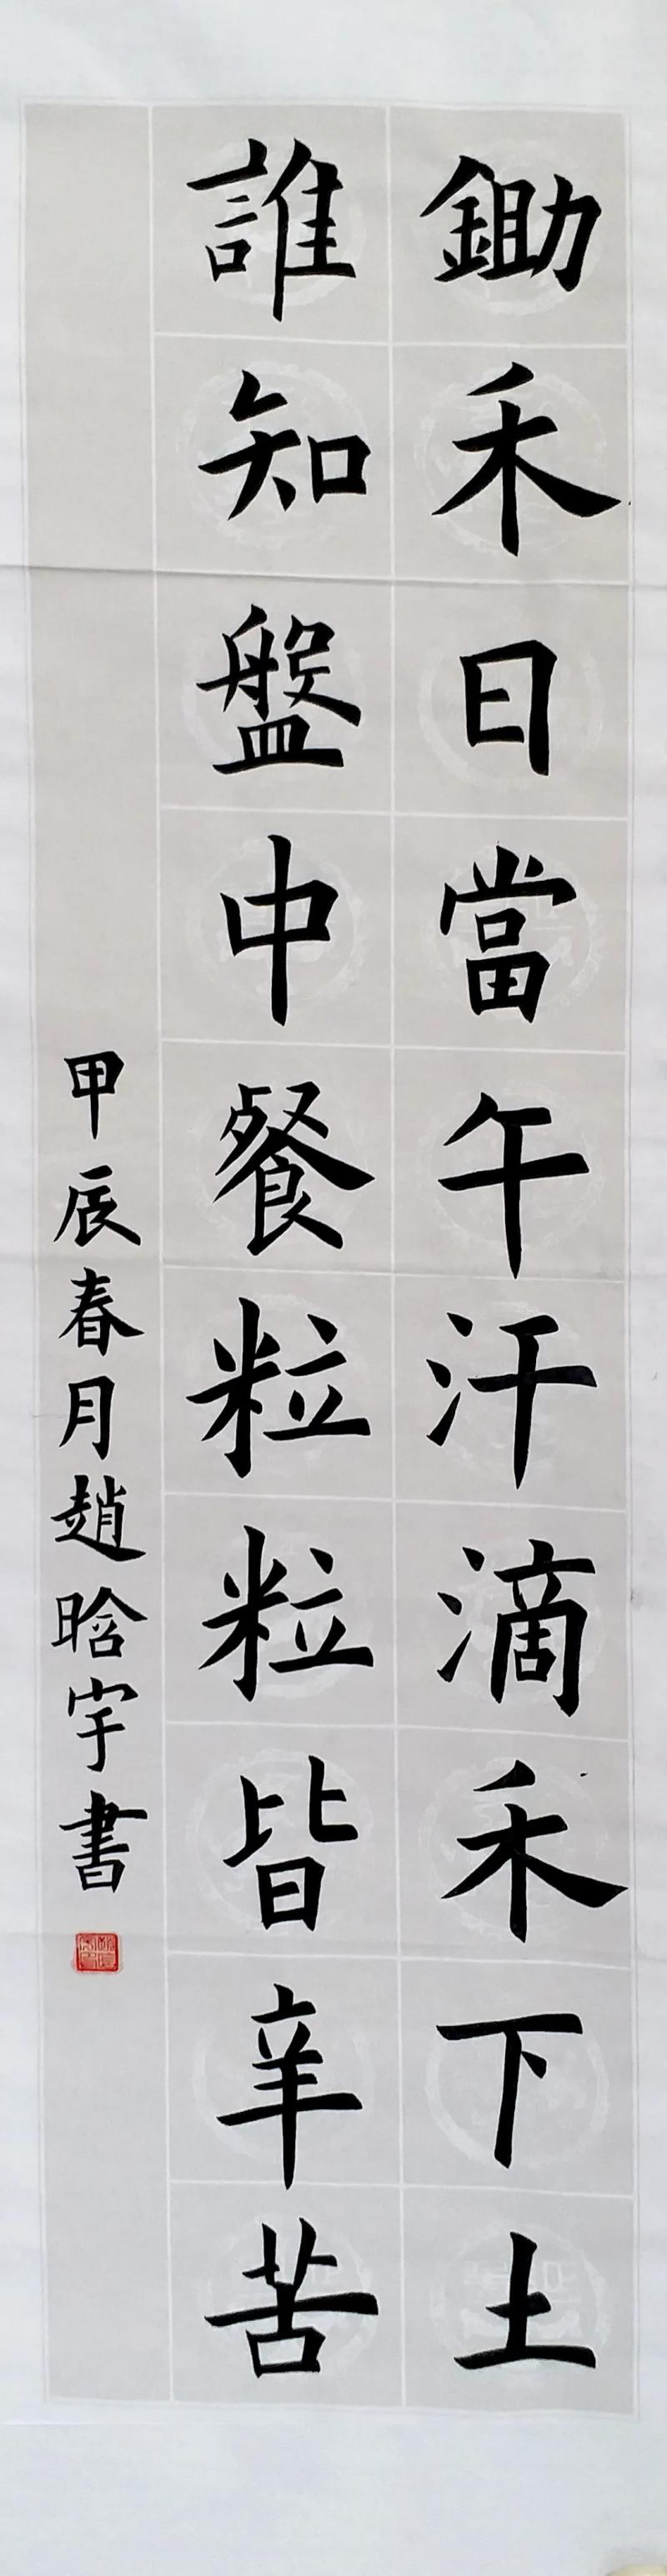 鋤禾日當午汗滴禾下土
誰知盤中餐粒粒皆辛苦
甲辰春月趙晗宇書